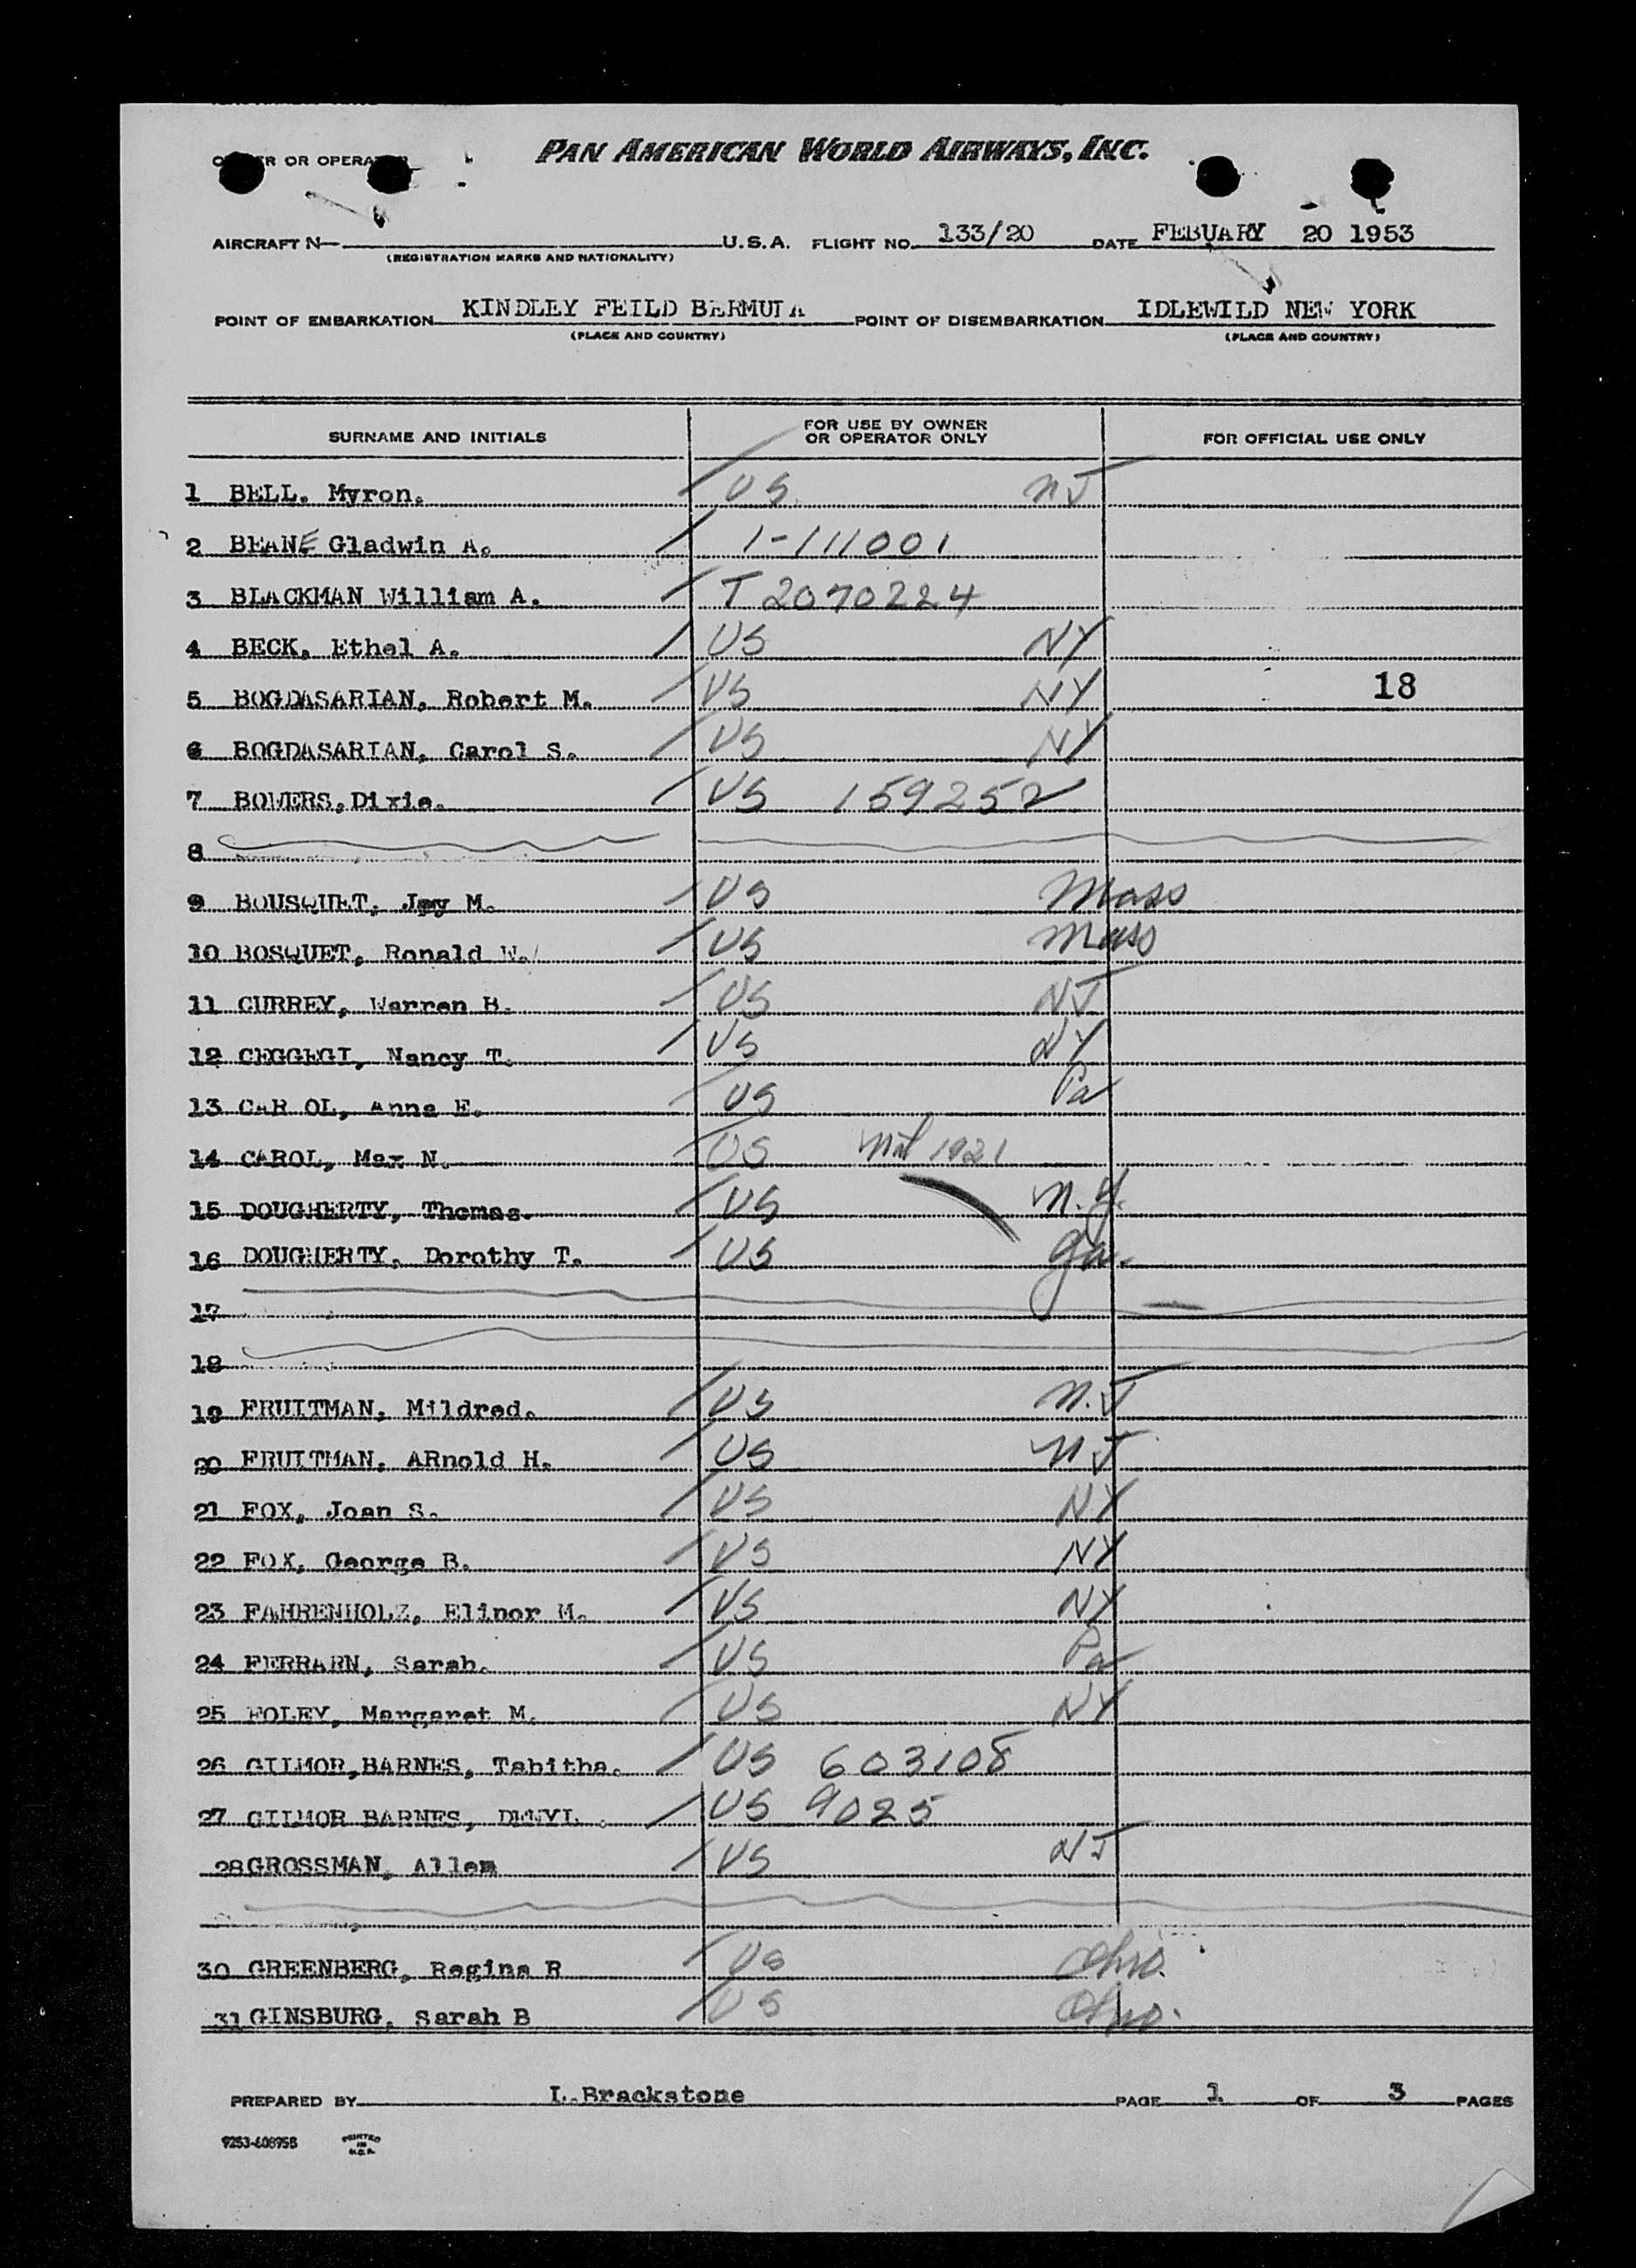 OWNER OR OPERATOR PAN AMERICAN WORLD AIRWAYS, INC.
AIRCRAFT N- U.S.A. FLIGHT NO. 133/20 DATE FEBUARY 20 1953
(REGISTRATION MARKS AND NATIONALITY)
POINT OF EMBARKATION KINDLEY FEILD BERMUDA POINT OF DISEMBARKATION IDLEWILD NEW YORK
(PLACE AND COUNTRY) (PLACE AND COUNTRY)
SURNAME AND INITIALS FOR USE BY OWNER OR OPERATOR ONLY FOR OFFICIAL USE ONLY
1 BELL. Myron. US NJ
2 BEANE Gladwin A. 1-111001
3 BLACKMAN William A. T 2070224
4 BECK, Ethel A. US NY
5 BOGDASARIAN, Robert M. US NY 18
6 BOGDASARIAN, Carol S. US NY
7 BOWERS,Dixie. US 159252
8
9 BOUSQUET, Joy M. US Mass
10 BOSQUET, Ronald W. US Mass
11 CURREY, Warren B. US NJ
12 CEGGEGI, Nancy T. US NY
13 CAR OL, Anna E. US Pa
14 CAROL, Max N. US 1921
15 DOUGHERTY, Thomas. US N.Y.
16 DOUGHERTY, Dorothy T. US Ga.
17
18
19 FRUITMAN, Mildred. US N.J
20 FRUITMAN, ARnold H. US NJ
21 FOX, Joan S. US NY
22 FOX, George B. US NY
23 FAHRENHOLZ, Elinor M. US NY
24 FERRARN, Sarah. US Pa
25 FOLEY, Margaret M. US NY
26 GILMOR,BARNES, Tabitha. US 603108
27 GILMOR BARNES, US 9025
28 GROSSMAN, Allen US NJ
30 GREENBERG, Regina R US Ohio.
31 GINSBURG, Sarah B US Ohio.
PREPARED BY L.Brackstone PAGE 1 OF 3 PAGES
9253-60895B PRINTED IN U.S.A.